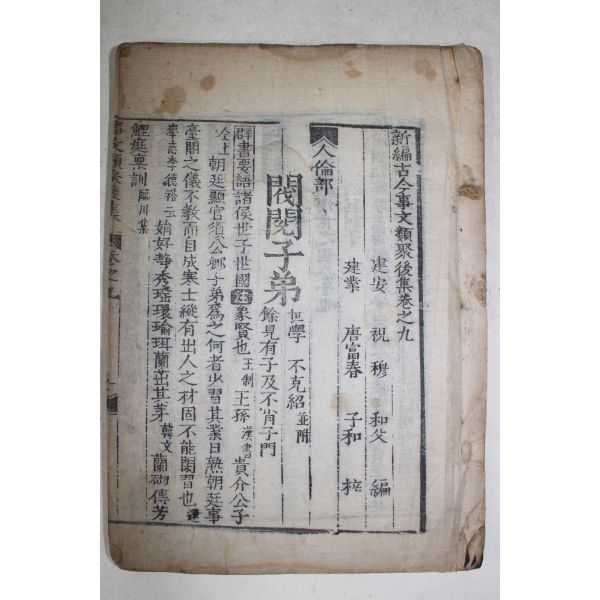 新編古今事文類聚後集卷之九
建安 祝 穆 和父 編
建業 唐富春 子和 梓
人倫部
閥閱子弟
世學 不克紹 並附
餘見有子及不肖子門
群書要語諸侯世子世國注象賢也王制王孫漢書貴介公子
朝廷顯官須公卿子弟爲之何者少習其業目熟朝廷事
臺閣之儀不教而自成寒士縱有出人之材固不能閑習也
李德裕云 娟好靜秀瑶環瑜珥蘭茁其芽韓文蘭砌傳芳
鯉庭禀訓臨川集
事文類聚後集 卷之九 一